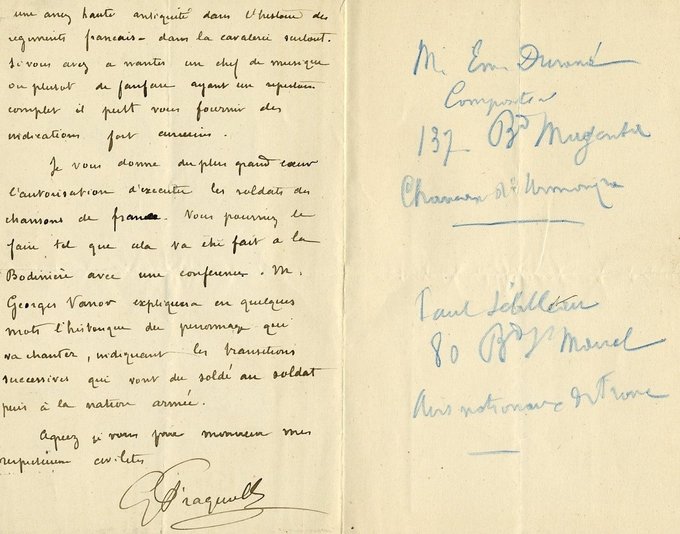 une assez haute antiquité dans l'histoire des
regiments francais - dans la cavalerie surtout.
Si vous avez a nantes un chef de musique
ou plutot de fanfare ayant un
complet il peut vous fournir des
indications fort
Je vous donne du plus grand cœur
l'autorisation d'executer les soldats des
chansons de france. Vous pourrez le
faire tel que cela va été fait à la
Bodinière avec une conference. M.
Georges Vanor expliquera en quelques
mots l'historique du personnage qui
va chanter, indiquant les transitions
successives qui vont du soldé au soldat
puis à la nation armée.
Agreez je vous prie monsieur mes
civilités
M. Durand
Compositeur
137 Bd Magenta
Chansons d'Armorique
Paul Sébillot
80 Bd St Marcel
Airs nationaux de France